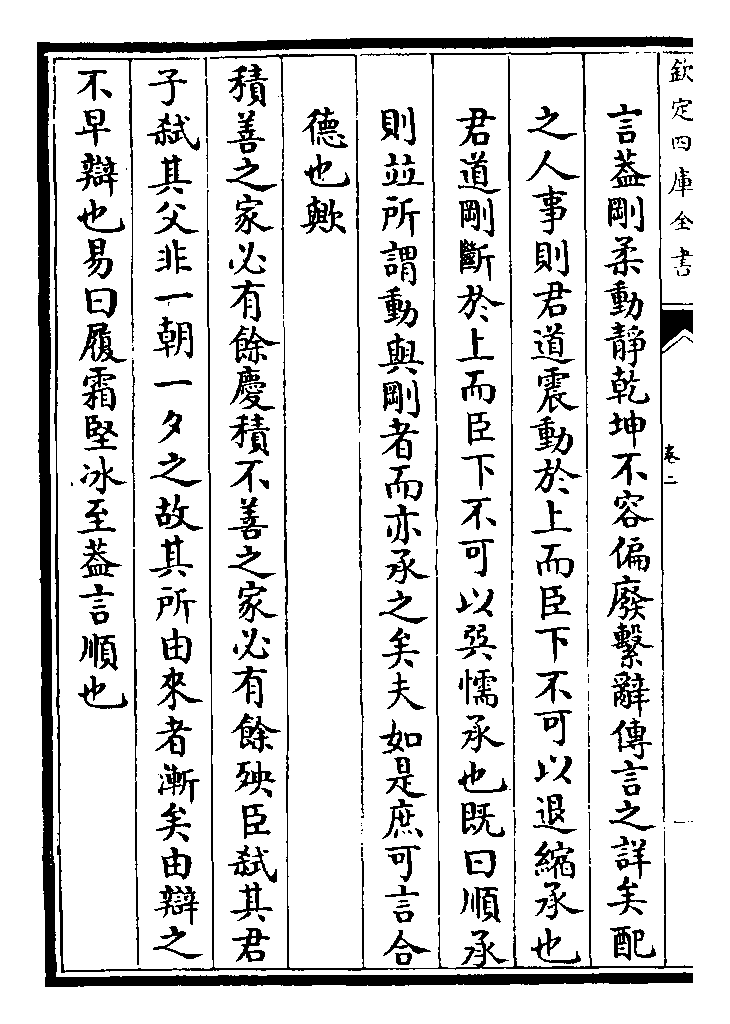 欽定四庫全書
卷二
言葢剛柔動靜乾坤不容偏廢繫辭傳言之詳矣配
之人事則君道震動於上而臣下不可以退縮承也
君道剛斷於上而臣下不可以巽懦承也既曰順承
則並所謂動與剛者而亦承之矣夫如是庶可言合
德也歟
積善之家必有餘慶積不善之家必有餘殃臣弑其君
子弑其父非一朝一夕之故其所由來者漸矣由辯之
不早辯也易曰履霜堅冰至葢言順也